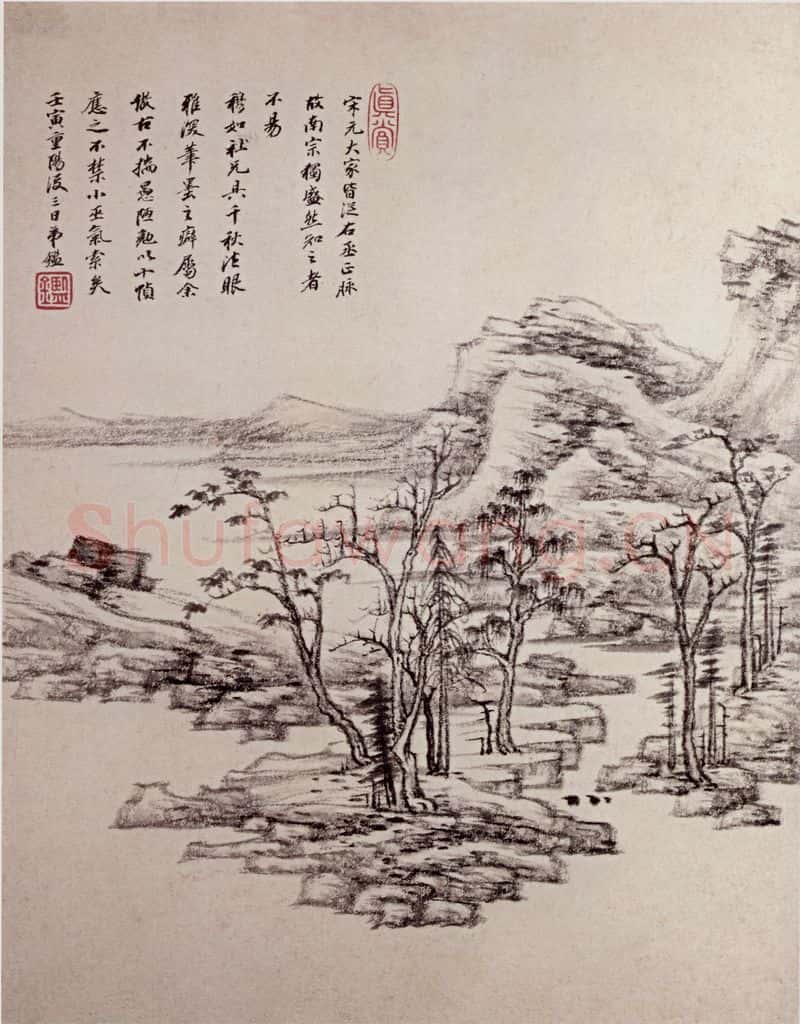 真賞
宋元大家皆從右丞正脈
故南宗獨盛然知之者
不易
穆如社兄具千秋法眼
雅深筆墨之癖屬余
倣古不揣愚陋勉以十幀
應之不禁小巫氣索矣
壬寅重陽後三日弟鑑
鑑
Shufawang.CN